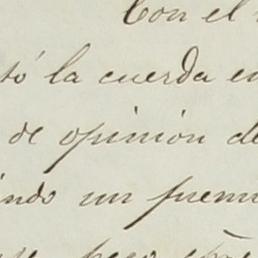 Con el
tó la cuerda en
de opinión de
indo un
pero